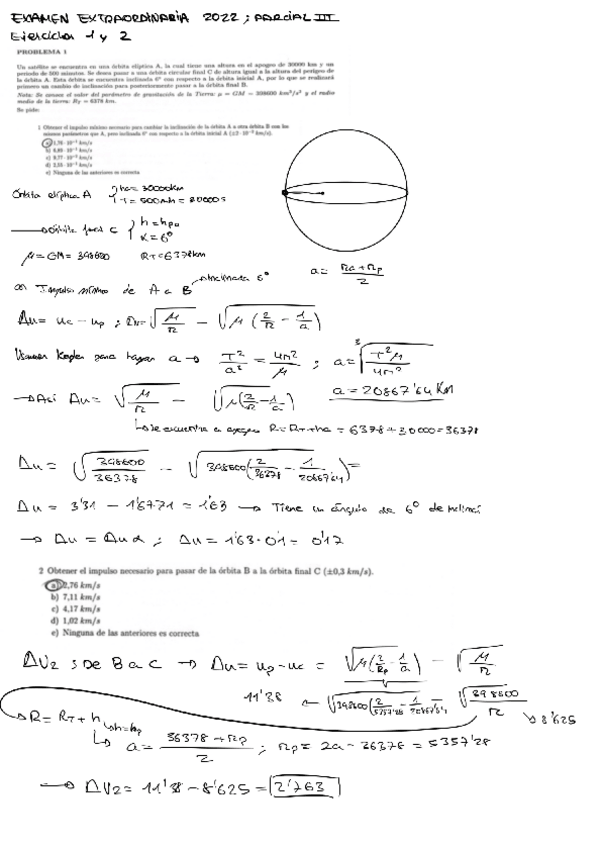 EXAMEN EXTRAORDINARIA 2022; PARCIAL III
Ejercicios 1 y 2
PROBLEMA 1
Un satélite se encuentra en una órbita elíptica A, la cual tiene una altura en el apogeo de 30000 km y un
periodo de 500 minutos. Se desea pasar a una órbita circular final C de altura igual a la altura del perigeo de
la órbita A. Esta órbita se encuentra inclinada 6º con respecto a la órbita inicial A, por lo que se realizará
primero un cambio de inclinación para posteriormente pasar a la órbita final B.
Nota: Se conoce el valor del parámetro de gravitación de la Tierra: μ = GM = 398600 km³/s² y el radio
medio de la tierra: R_T = 6378 km.
Se pide:
1 Obtener el impulso mínimo necesario para cambiar la inclinación de la órbita A a otra órbita B con los
mismos parámetros que A, pero inclinada 6º con respecto a la órbita inicial A (±2 · 10⁻² km/s).
a) 1,76 · 10⁻¹ km/s
e) Ninguna de las anteriores es correcta
Órbita elíptica A { ha = 30000km
T = 500min = 30000s
→ Órbita final C { h = hpa
α = 6º
μ = GM = 398600 RT = 6378km
a = (ra + rp)/2
a) Impulso mínimo de A a B inclinada 6º
Δu = uc - up ; Δu = √(μ/r) - √(μ(2/r - 1/a))
Usamos Kepler para hayar a → T²/a³ = 4π²/μ ; a = ³√(T²μ/4π²)
a = 20867'64 Km
→ Así Δu = √(μ/r) - √(μ(2/r - 1/a))
↳ se encuentra en apogeo R = RT + ha = 6378 + 30000 = 36378
Δu = √(398600/36378) - √(398600(2/36378 - 1/20867'64)) =
Δu = 3'31 - 1'6771 = 1'63 → Tiene un ángulo de 6º de inclinaci
→ Δu = Δu α ; Δu = 1'63 · 0'1 = 0'17
2 Obtener el impulso necesario para pasar de la órbita B a la órbita final C (±0,3 km/s).
a) 2,76 km/s
b) 7,11 km/s
c) 4,17 km/s
d) 1,02 km/s
e) Ninguna de las anteriores es correcta
ΔV2 ; DE B a C → Δu = up - uc = √(μ(2/Rp - 1/a)) - √(μ/r)
11'38 ← √(398600(2/5357'28 - 1/20867'64)) √(398600/r) ↘ 8'625
→ R = RT + h ↳ h = hp
↳ a = (36378 + rp)/2 ; rp = 2a - 36378 = 5357'28
→ ΔV2 = 11'38 - 8'625 = 2'763